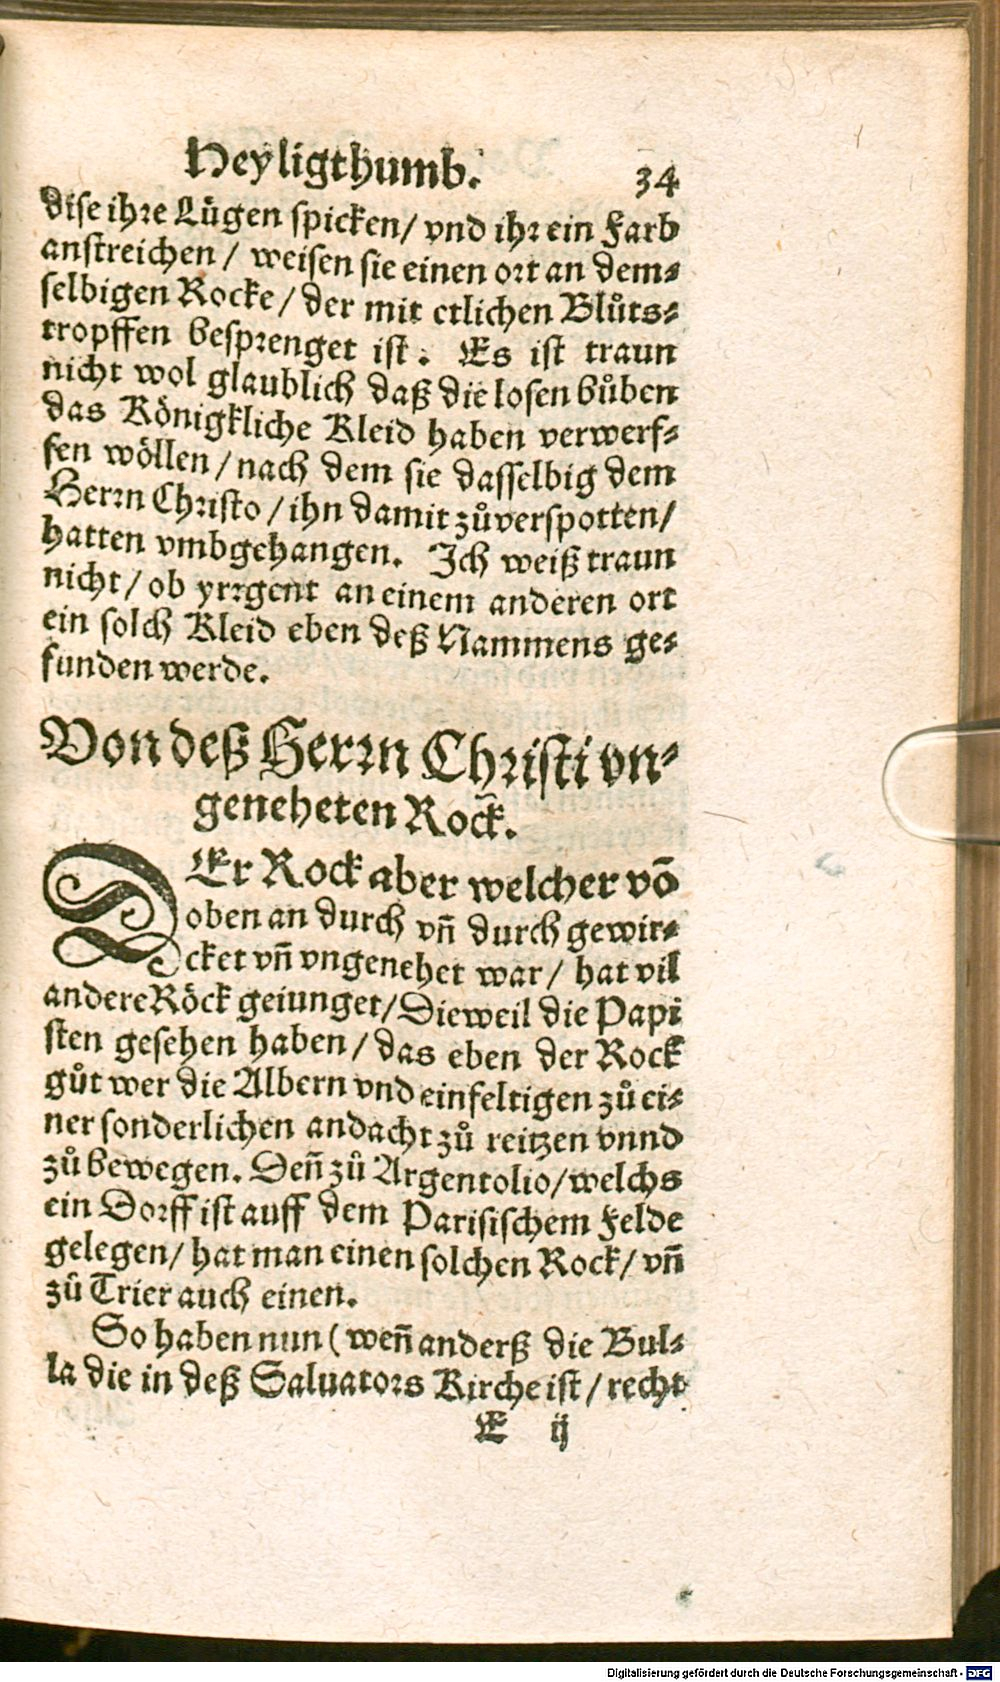 Heyligthumb. 34
dise ihre Lügen spicken/ vnd ihr ein Farb
anstreichen/ weisen sie einen ort an dem⸗
selbigen Rocke/ der mit etlichen Blůts⸗
tropffen besprenget ist. Es ist traun
nicht wol glaublich daß die losen bůben
das Königkliche Kleid haben verwerf⸗
fen wöllen/ nach dem sie dasselbig dem
Herrn Christo/ ihn damit zůverspotten/
hatten vmbgehangen. Ich weiß traun
nicht/ ob yrrgent an einem anderen ort
ein solch Kleid eben deß Nammens ge⸗
funden werde.
Von deß Herrn Christi vn⸗
geneheten Rock.
DEr Rock aber welcher võ
oben an durch vñ durch gewir⸗
cket vñ vngenehet war/ hat vil
andere Röck geiunget/ Dieweil die Papi
sten gesehen haben/ das eben der Rock
gůt wer die Albern vnd einfeltigen zů ei⸗
ner sonderlichen andacht zů reitzen vnnd
zů bewegen. Deñ zů Argentolio/ welchs
ein Dorff ist auff dem Parisischem Felde
gelegen/ hat man einen solchen Rock/ vñ
zů Trier auch einen.
So haben nun (weñ anderß die Bul⸗
la die in deß Saluators Kirche ist/ recht
E ij
Digitalisierung gefördert durch die Deutsche Forschungsgemeinschaft - DFG